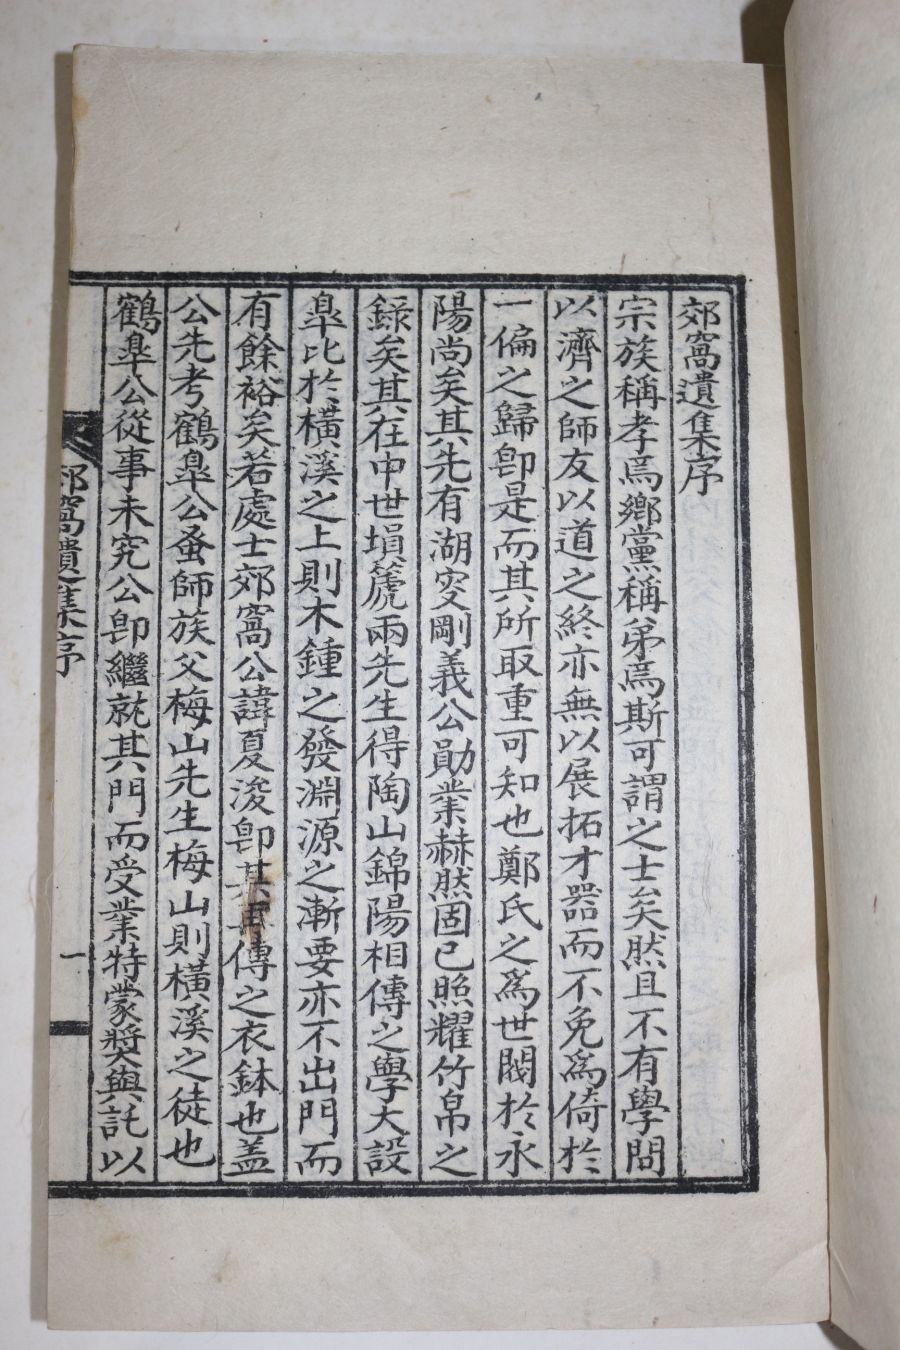 郊窩遺集序
宗族稱孝焉鄉黨稱弟焉斯可謂之士矣然且不有學問
以濟之師友以道之終亦無以展拓才器而不免爲倚於
一偏之歸卽是而其所取重可知也鄭氏之爲世閥於永
陽尚矣其先有湖叟剛義公勛業赫然固已照耀竹帛之
錄矣其在中世塤篪兩先生得陶山錦陽相傳之學大設
臯比於橫溪之上則木鍾之發淵源之漸要亦不出門而
有餘裕矣若處士郊窩公諱夏浚卽其傳之衣鉢也盖
公先考鶴臯公蚤師族父梅山先生梅山則橫溪之徒也
鶴臯公從事未究公卽繼就其門而受業特蒙奬與託以
郊窩遺集序
一